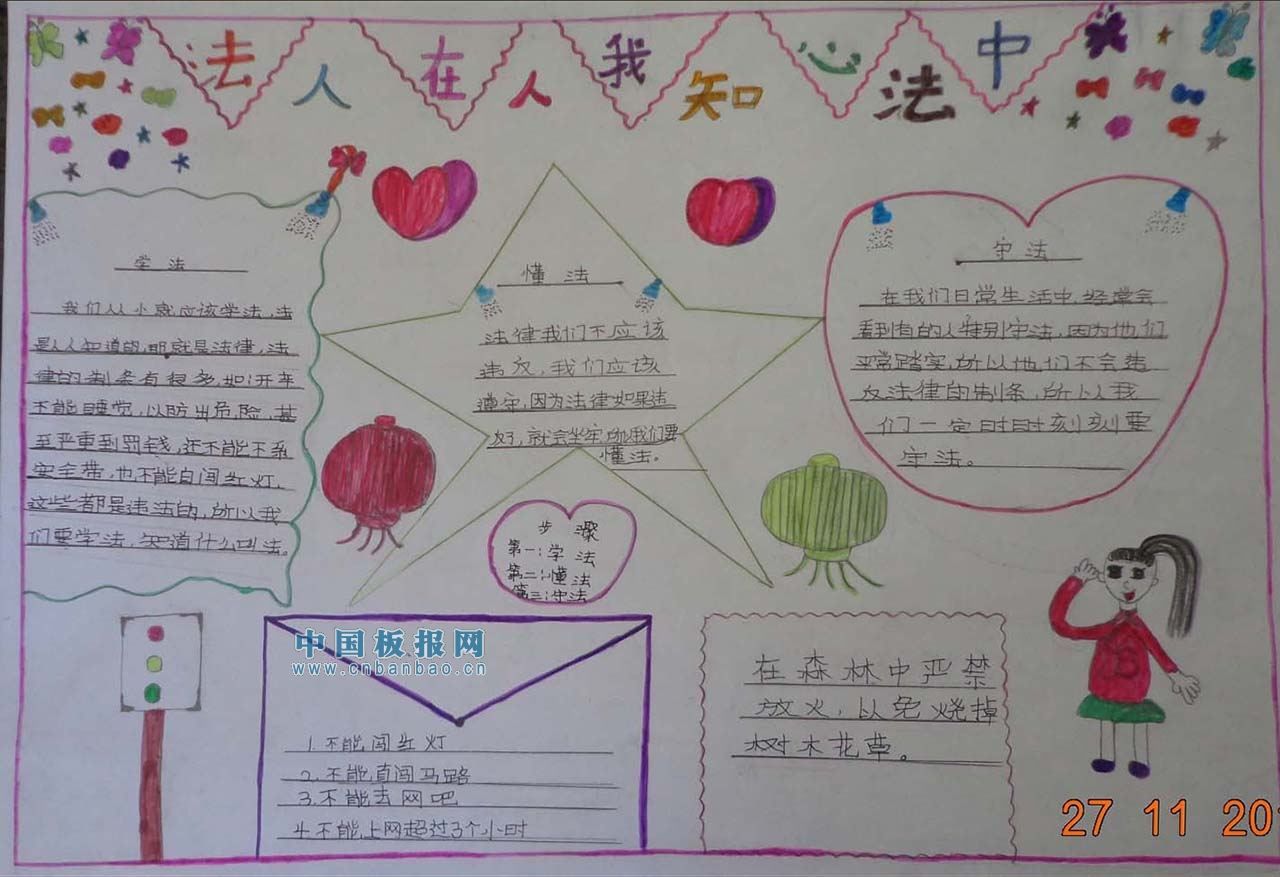 法人在人我知心法中
学法
我们从小就应该学法,法
是人人知道的,那就是法律,法
律的制条有很多,如:开车
不能睡觉,以防出危险,甚
至严重到罚钱,还不能不系
安全带,也不能自闯红灯,
这些都是违法的,所以我
们要学法,知道什么叫法。
懂法
法律我们不应该
违反,我们应该
遵守,因为法律如果违
反,就会坐牢,所以我们要
懂法。
守法
在我们日常生活中,经常会
看到有的人特别守法,因为他们
平常踏实,所以他们不会违
反法律的制条,所以我
们一定时时刻刻要
守法。
步骤
第一:学法
第二:懂法
第三:守法
中国板报网
www.cnbanbao.cn
1.不能闯红灯
2.不能直闯马路
3.不能去网吧
4.不能上网超过3个小时
在森林中严禁
放火,以免烧掉
树木花草。
B
27 11 20